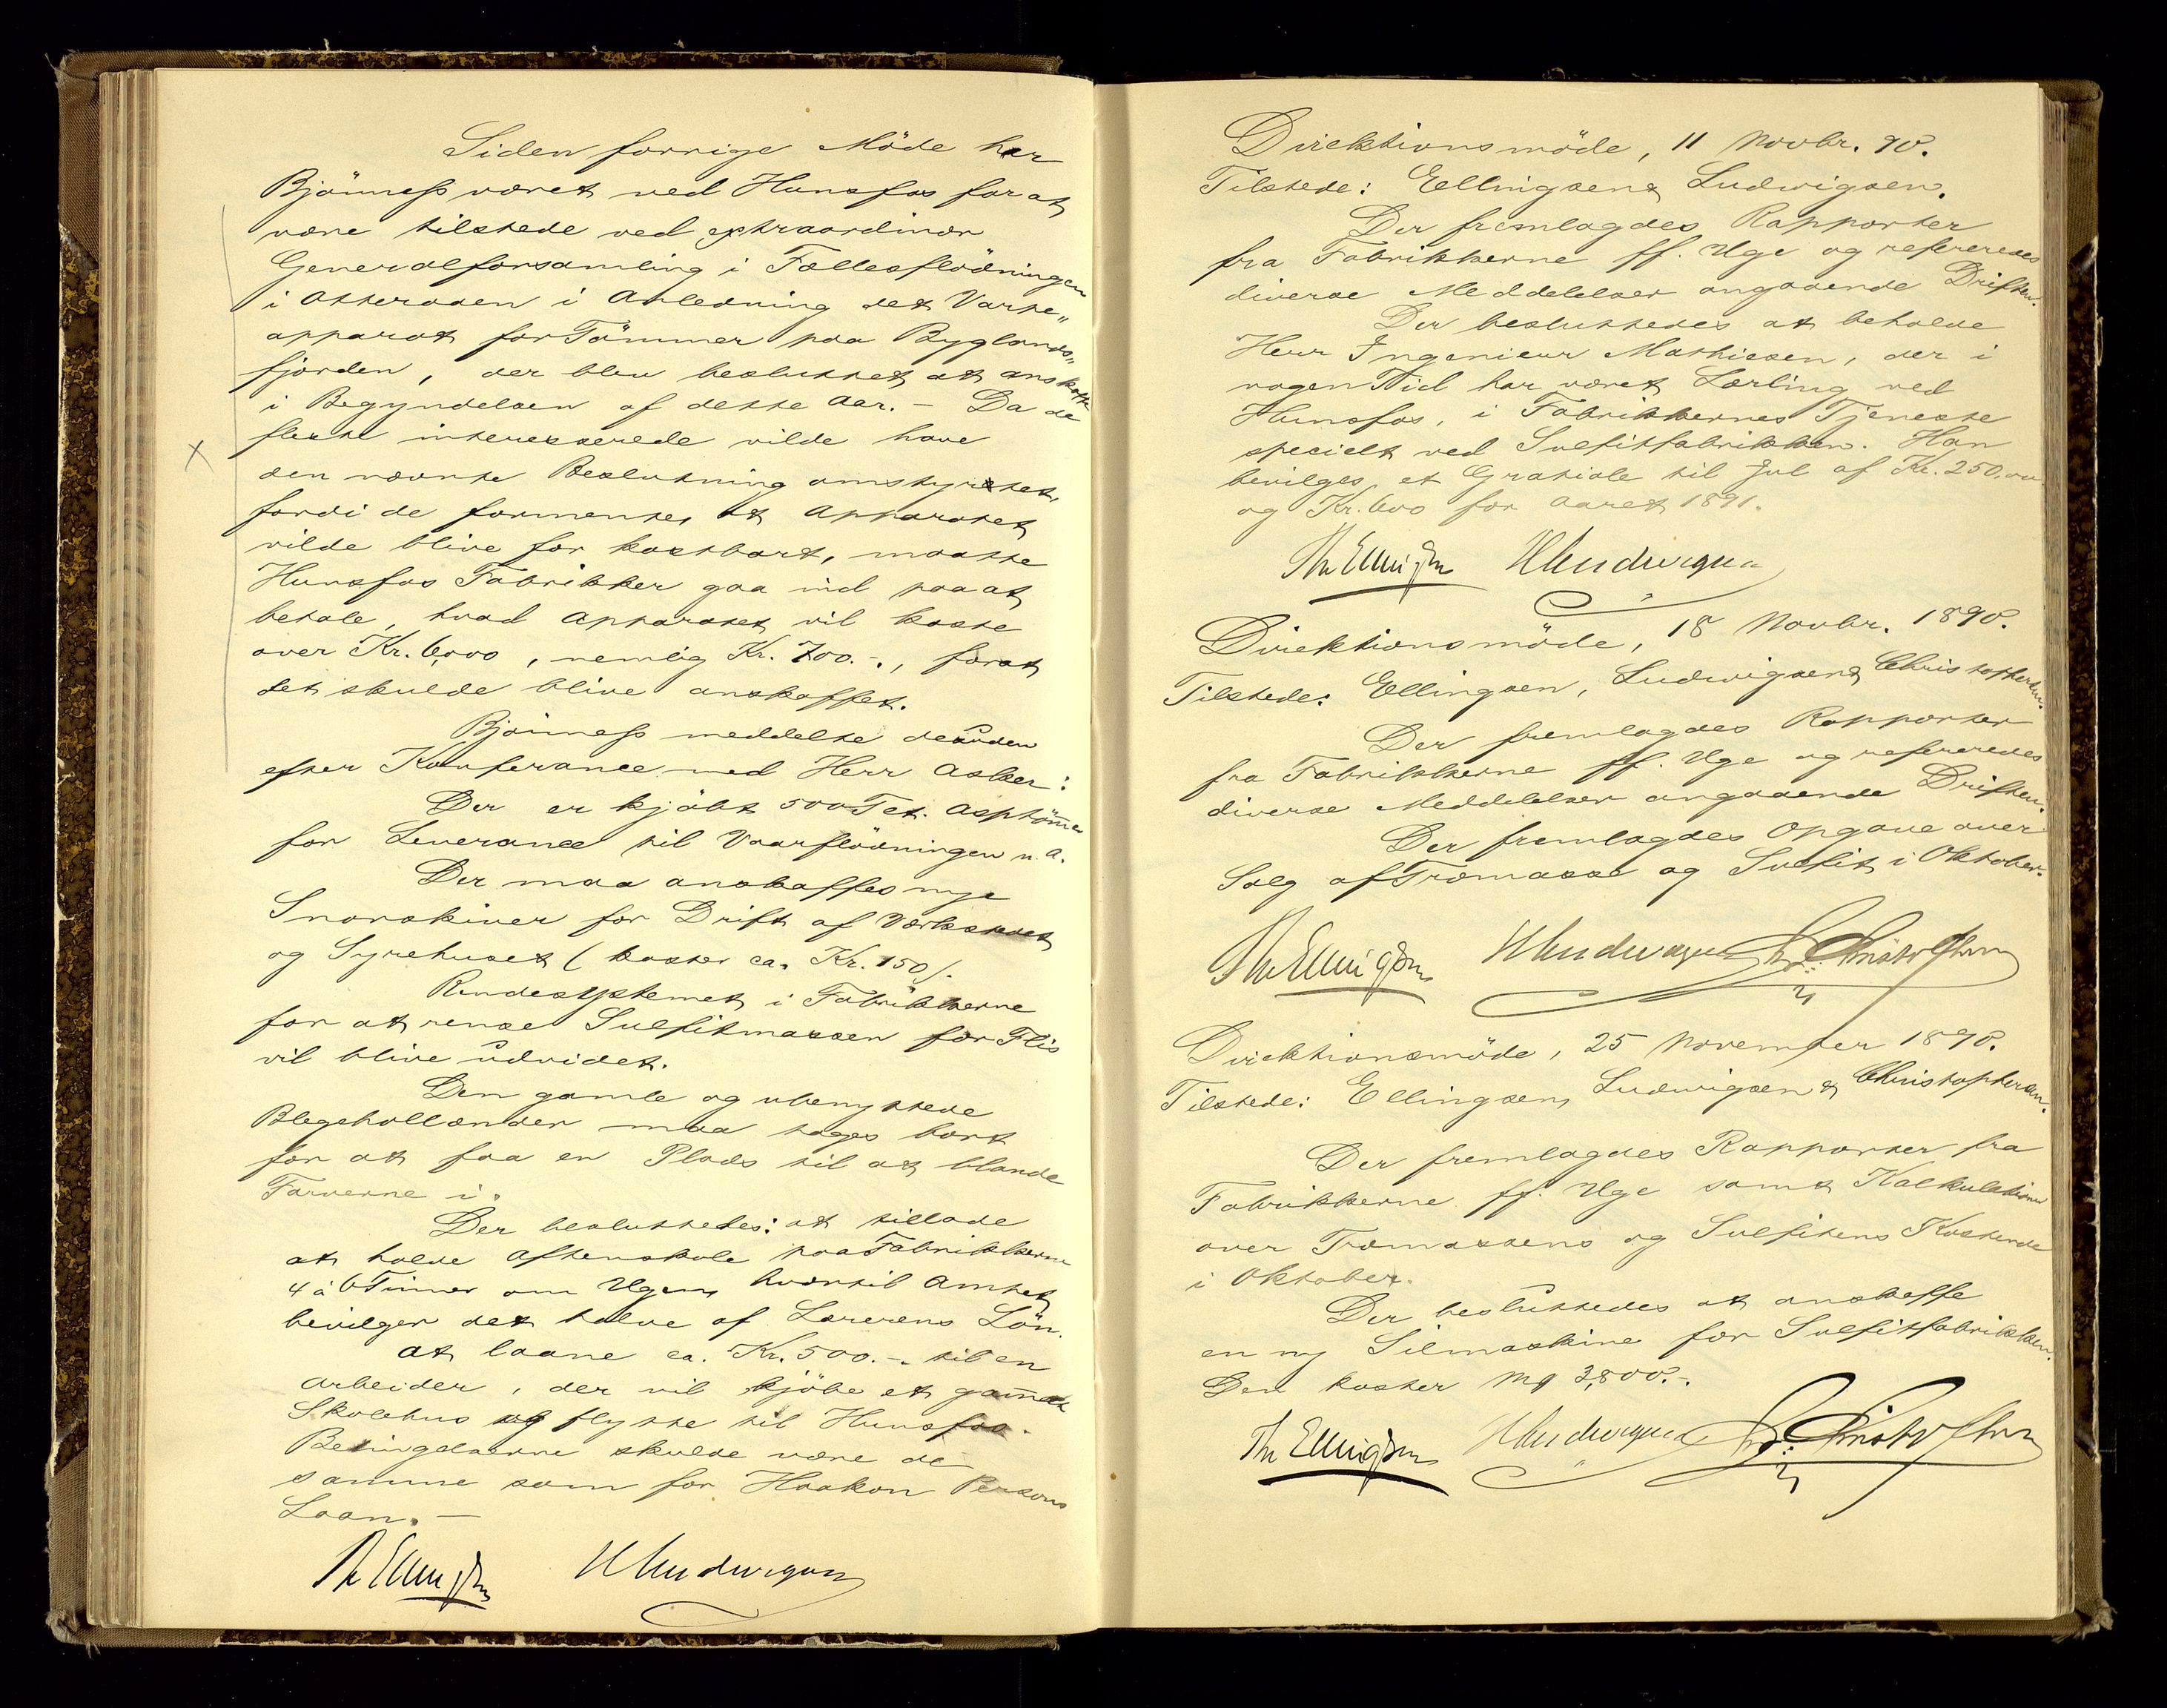 Siden forrige Möde har
Bjönness været ved Hunsfos for at
være tilstede ved extraordinær
Generalforsamling i Fællesflödningen
i Otteraaen i Anledning det Varpe„
apparat for Tömmer paa Byglands„
fjorden, der blev besluttet at anskaffe
i Begyndelsen af dette Aar. – Da de
fleste interesserede vilde have
den nævnte Beslutning omstyrtet,
fordi de formente, at Apparatet
vilde blive for kostbart, maatte
Hunsfos Fabrikker gaa ind paa at
betale, hvad Apparatet vil koste
over Kr. 6,000, nemlig Kr. 700.-, forat
det skulde blive anskaffet.
Bjönness meddelte desuden
efter Konferance med Herr Asker:
Der er kjöbt 500 Tct. Asptömmer
for Leverance til Vaarflödningen n. A.
Der maa anskaffes nye
Snorskiver for Drift af Værkstedet
og Syrehuset (koster ca. Kr. 150).
Rendesystemet i Fabrikkerne
for at rense Sulfitmassen for Flis
vil blive udvidet.
Den gamle og ubenyttede
Blegehollænder maa tages bort
for at faa en Plads til at blande
Farverne i.
Der besluttedes: at tillade
at holde Aftenskole paa Fabrikkerne
4 à 6 Timer om Ugen, hvortil Amtet
bevilger det halve af Lærerens Lön.
at laane ca. Kr. 500.-. til en
Arbeider, der vil kjöbe et gammelt
Skolehus og flytte til Hunsfos.
Betingelserne skulde være de
samme som for Haakon Persons
Laan. –
Th Ellingsen HLudwigsen
Direktionsmöde, 11 Novbr. 90.
Tilstede: Ellingsen & Ludwigsen.
Der fremlagdes Rapporter
fra Fabrikkerne ff. Uge og refereredes
diverse Meddelelser angaaende Driften.
Der besluttedes at beholde
Herr Ingeniør Mathiesen, der i
nogen Tid har været Lærling ved
Hunsfos, i Fabrikkernes Tjeneste
specielt ved Sulfitfabrikken. Han
bevilges et Gratiale til Jul af Kr. 250.00
og Kr. 600 for Aaret 1891.
Th Ellingsen HLudwigsen
Direktionsmöde, 18 Novbr. 1890.
Tilstede: Ellingsen, Ludwigsen & Christophersen.
Der fremlagdes Rapporter
fra Fabrikkerne ff. Uge og refereredes
diverse Meddelelser angaaende Driften.
Der fremlagdes Opgave over
Salg af Træmasse og Sulfit i Oktober.
Th Ellingsen HLudwigsen Chr. Christophersen
Direktionsmöde, 25 November 1890.
Tilstede: Ellingsen, Ludwigsen & Christophersen.
Der fremlagdes Rapporter fra
Fabrikkerne ff. Uge samt Kalkulationer
over Træmassens og Sulfitens Kostende
i Oktober.
Der besluttedes at anskaffe
en ny Silmaskine for Sulfitfabrikken.
Den koster Mq 3,800.-.
Th Ellingsen HLudwigsen Chr. Christophersen